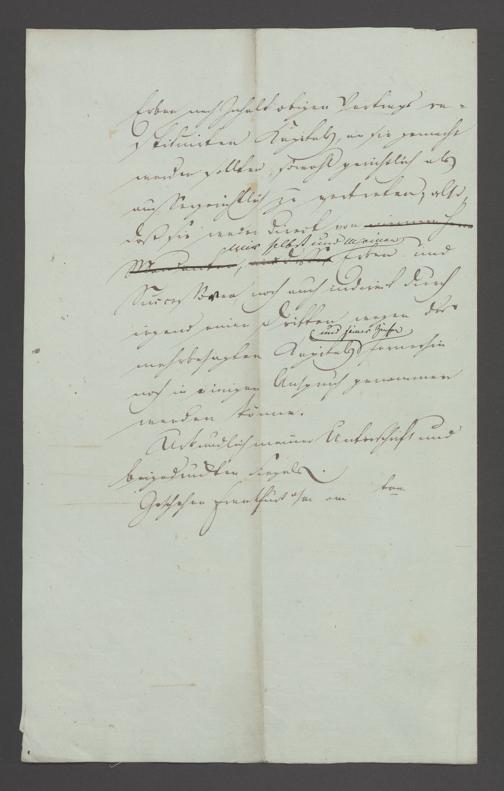 Erben nach Inhalt obigen Vertrags re=
stituirten Kapitals, an sie gemacht
werden sollten, sowohl gerichtlich als
aussergerichtlich zu vertreten, also,
daß sie weder direct von
mir selbst und meinen
Erben und
Successoren noch auch indirect durch
irgend einen Dritten wegen des
und seiner Zinsen
mehrbesagten Kapitals fernerhin
noch in einigen Anspruch genommen
werden könne.
Urkundlich meiner Unterschrift und
beigedruckten Siegels.
Geschehen Frankfurt a/m am ten